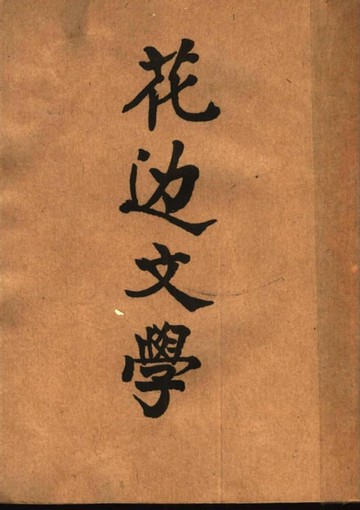 花边文學